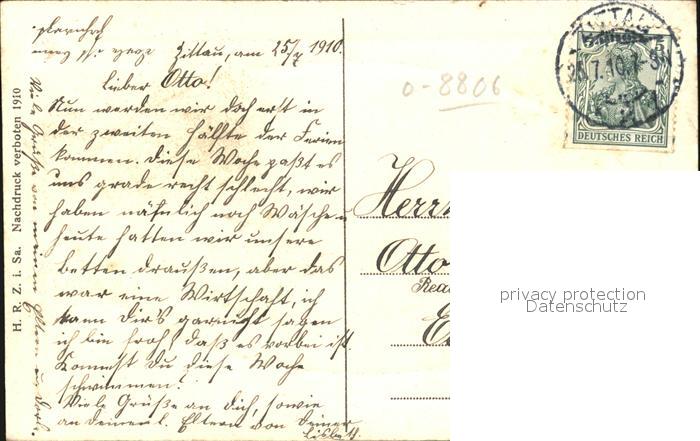 Zittau, am 25/7 1910.
Lieber Otto!
Nun werden wir doch erst in
der zweiten Hälfte der Ferien
kommen. Diese Woche paßt es
uns grade recht schlecht, wir
haben nähmlich noch Wäsche u
heute hatten wir unsere
Betten draußen, aber das
war eine Wirtschaft, ich
kann Dir's garnicht sagen
ich bin froh, daß es vorbei ist.
Kommst Du diese Woche
schwimmen?
Viele Grüße an Dich, sowie
an deine l. Eltern von Deiner
Viele Grüße von meinen Eltern u.
H. R. Z. i. Sa. Nachdruck verboten 1910
0-8806
ZITTAU
25.7.10.7-8N
DEUTSCHES REICH
Herrn
Otto
privacy protection
Datenschutz